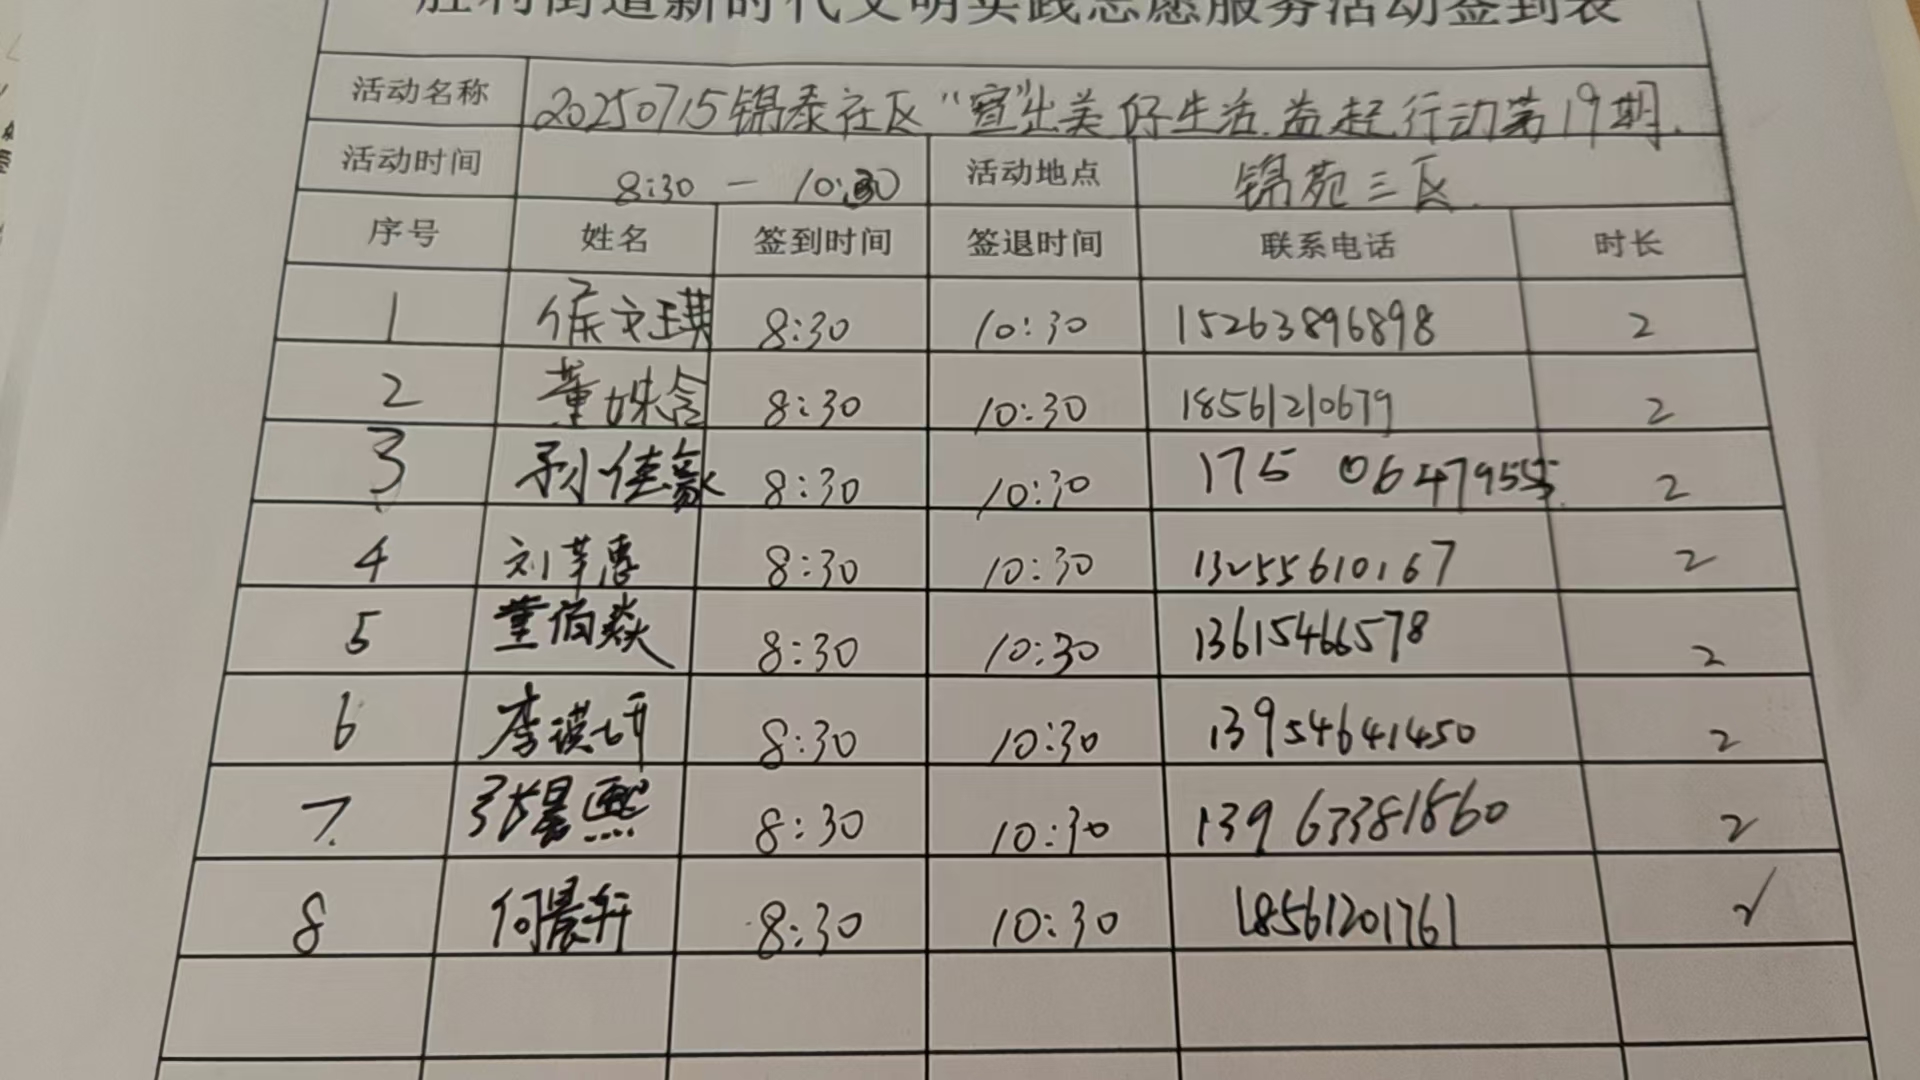 胜利街道新时代文明实践志愿服务活动签到表
活动名称 20250715锦泰社区“宣”出美好生活.益起行动第19期.
活动时间 8:30 — 10:30 活动地点 锦苑三区.
序号 姓名 签到时间 签退时间 联系电话 时长
1 侯文琪 8:30 10:30 15263896898 2
2 董姝含 8:30 10:30 18561210679 2
3 孙佳毅 8:30 10:30 175 0647955 2
4 刘芊惠 8:30 10:30 13255610167 2
5 董佰焱 8:30 10:30 13615466578 2
6 李谟妍 8:30 10:30 13954641450 2
7. 张晷熙 8:30 10:30 13963381860 2
8 何晨轩 8:30 10:30 18561201761 √